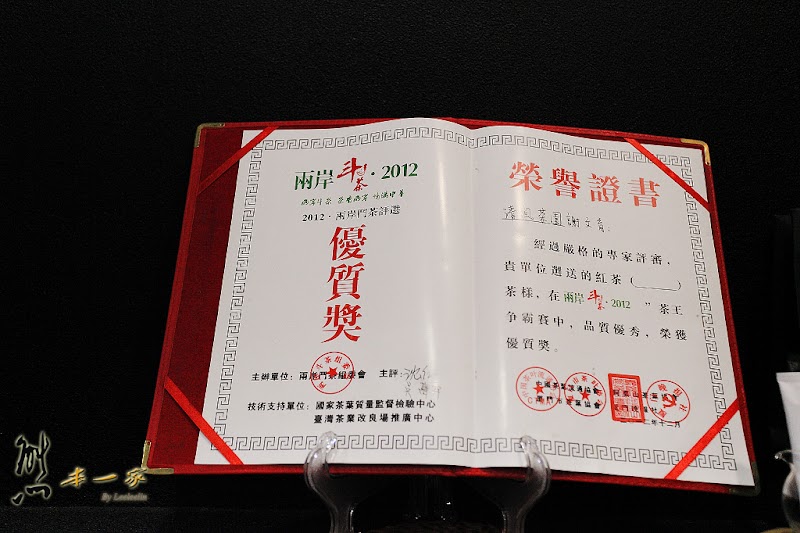 兩岸斗茶·2012
2012·兩岸鬥茶評選
優質獎
主辦單位：兩岸鬥茶組委會 主評：
技術支持單位：國家茶葉質量監督檢驗中心
臺灣茶業改良場推廣中心
榮譽證書
茶園謝文青：
經過嚴格的專家評審，
貴單位選送的紅茶（______）
茶樣，在兩岸斗茶·2012 "茶王
爭霸賽中，品質優秀，榮獲
優質獎。
中國茶葉流通協會
廈門市茶葉協會
年十二月
熊本一家
By Leeleelin